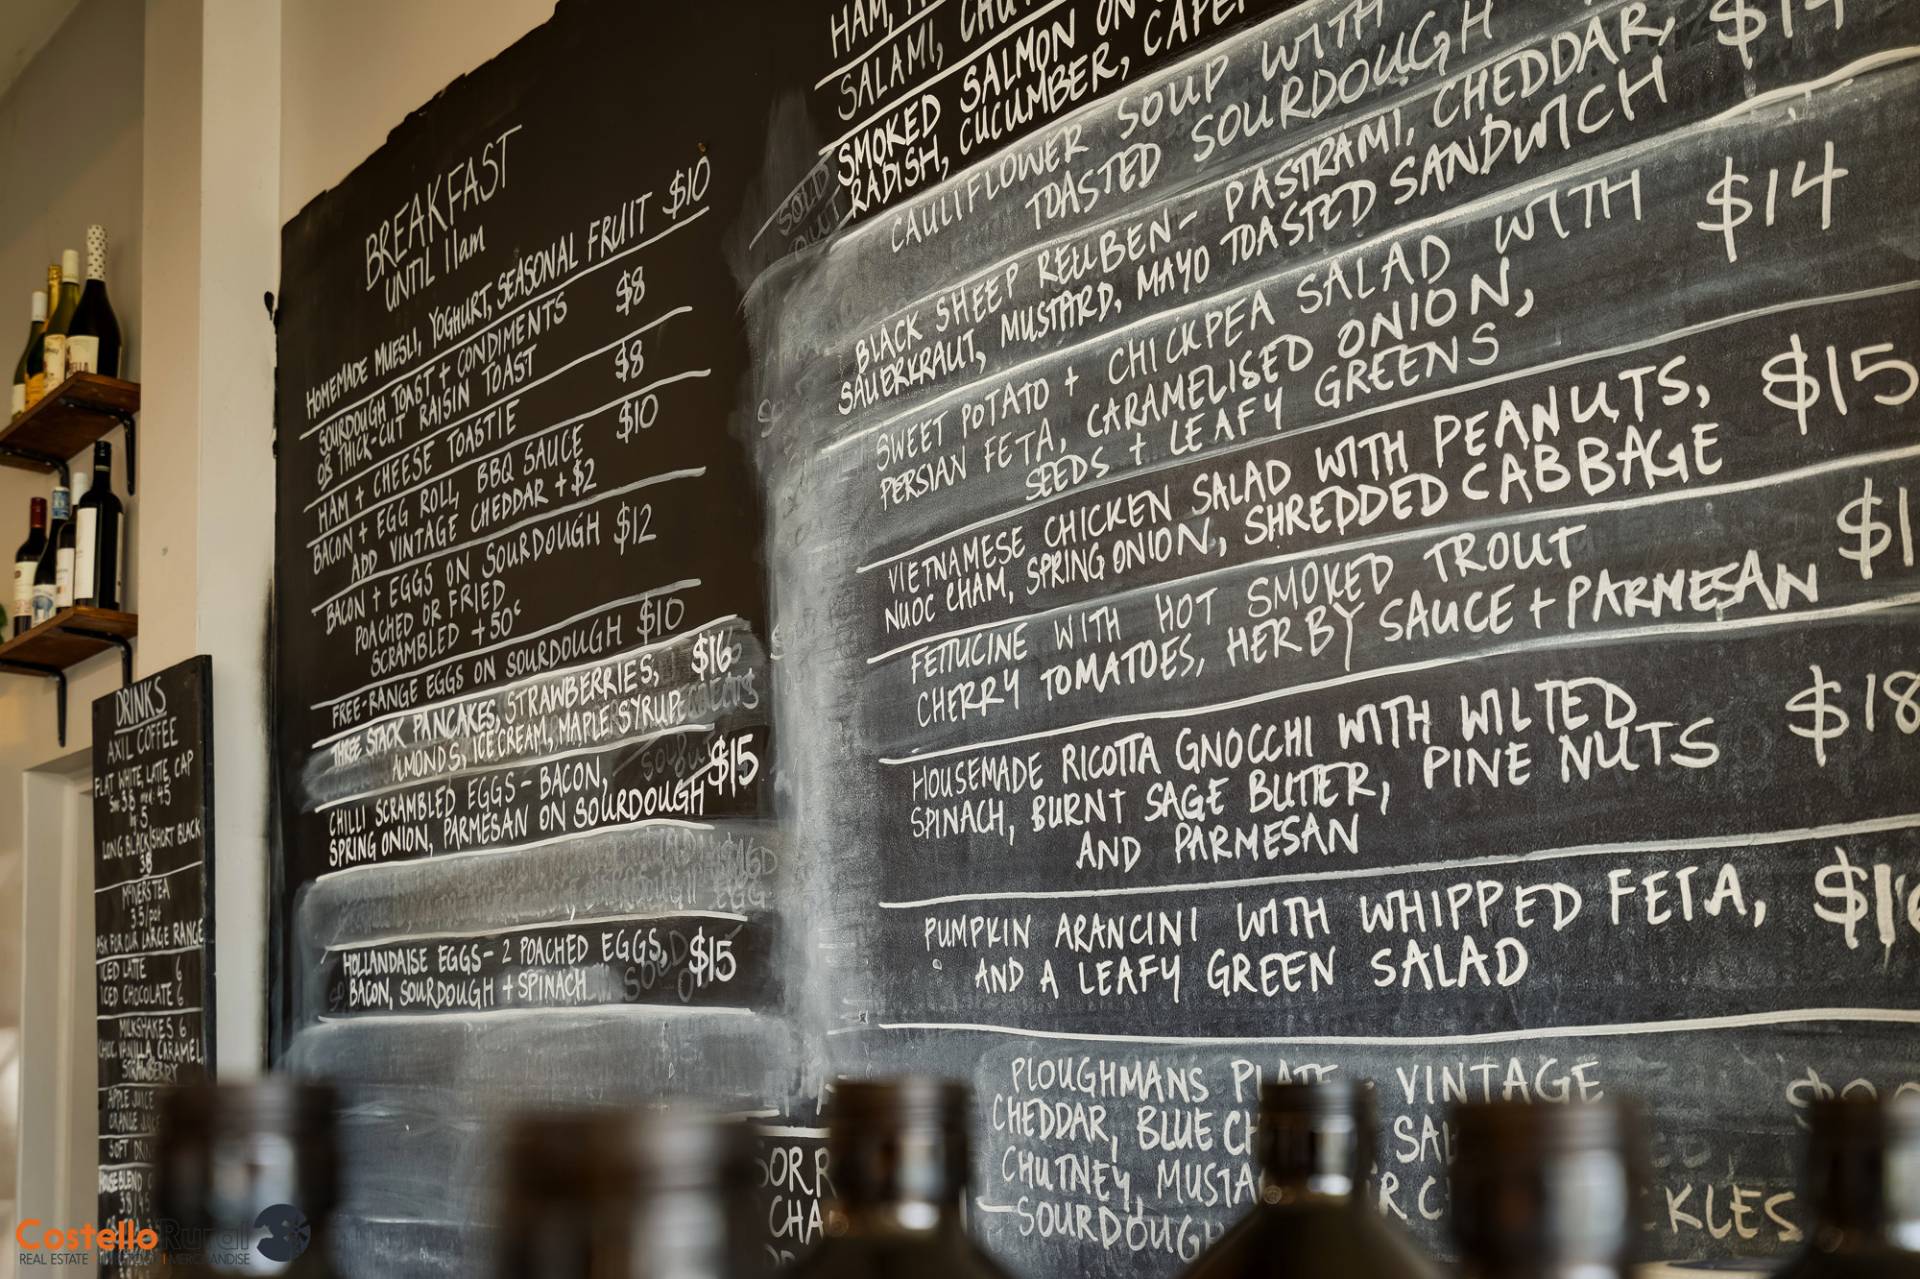 BREAKFAST
UNTIL 11am
HOMEMADE MUESLI, YOGHURT, SEASONAL FRUIT $10
SOURDOUGH TOAST + CONDIMENTS $8
OR THICK-CUT RAISIN TOAST
HAM + CHEESE TOASTIE $8
BACON + EGG ROLL, BBQ SAUCE $10
ADD VINTAGE CHEDDAR +$2
BACON + EGGS ON SOURDOUGH $12
POACHED OR FRIED
SCRAMBLED +50c
FREE-RANGE EGGS ON SOURDOUGH $10
THREE STACK PANCAKES, STRAWBERRIES, $16
ALMONDS, ICE CREAM, MAPLE SYRUP
CHILLI SCRAMBLED EGGS - BACON, $15
SPRING ONION, PARMESAN ON SOURDOUGH
HOLLANDAISE EGGS - 2 POACHED EGGS, $15
BACON, SOURDOUGH + SPINACH
SOLD
OUT
HAM,
SALAMI,
SMOKED SALMON ON
RADISH, CUCUMBER,
CAULIFLOWER SOUP WITH
TOASTED SOURDOUGH
BLACK SHEEP REUBEN - PASTRAMI, CHEDDAR, $14
SAUERKRAUT, MUSTARD, MAYO TOASTED SANDWICH
SWEET POTATO + CHICKPEA SALAD WITH $14
PERSIAN FETA, CARAMELISED ONION,
SEEDS + LEAFY GREENS
VIETNAMESE CHICKEN SALAD WITH PEANUTS, $15
NUOC CHAM, SPRING ONION, SHREDDED CABBAGE
FETTUCINE WITH HOT SMOKED TROUT $1
CHERRY TOMATOES, HERBY SAUCE + PARMESAN
HOUSEMADE RICOTTA GNOCCHI WITH WILTED $18
SPINACH, BURNT SAGE BUTTER, PINE NUTS
AND PARMESAN
PUMPKIN ARANCINI WITH WHIPPED FETA, $16
AND A LEAFY GREEN SALAD
PLOUGHMANS PLATE - VINTAGE
CHEDDAR, BLUE CH
CHUTNEY, MUSTA
SOURDOUGH
CKLES
DRINKS
AXIL COFFEE
FLAT WHITE, LATTE, CAP
LONG BLACK/SHORT BLACK
TEA
3.5/pot
ASK FOR OUR LARGE RANGE
ICED LATTE 6
ICED CHOCOLATE 6
MILKSHAKES 6
CHOC, VANILLA, CARAMEL,
STRAWBERRY
APPLE JUICE
ORANGE JUICE
SOFT DRIN
Costello Rural
REAL ESTATE
MERCHANDISE